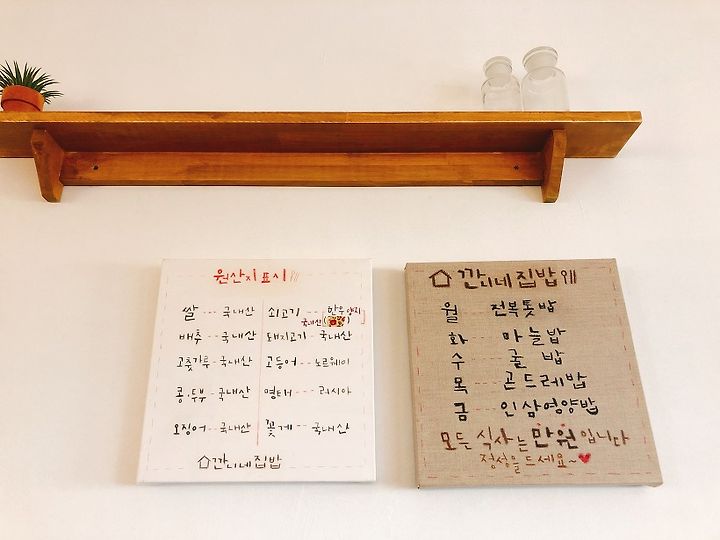 원산지표시
쌀 --- 국내산
배추 -- 국내산
고춧가루 - 국내산
콩·두부 - 국내산
오징어 -- 국내산
쇠고기 --- 한우
국내산
돼지고기 - 국내산
고등어 -- 노르웨이
명태 --- 러시아
꽃게 --- 국내산
깐니네집밥
깐니네집밥
월 전복톳밥
화 --- 마늘밥
수 --- 굴밥
목 --- 곤드레밥
금 --- 인삼영양밥
모든 식사는 만원입니다
정성을드세요~